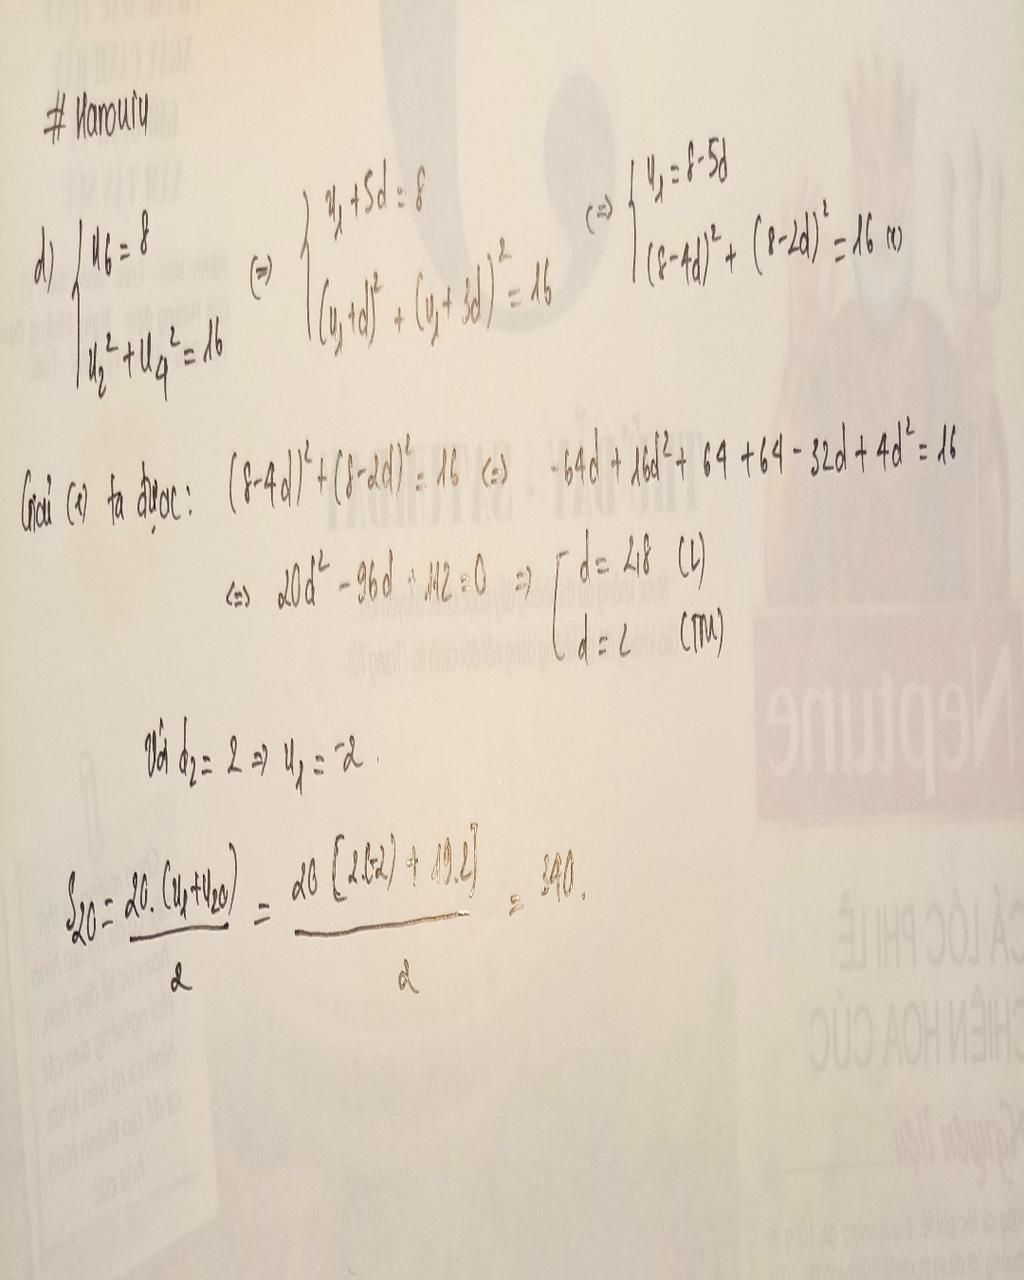 # Harouiu
d) { u₆ = 8 (=) { u₁ + 5d = 8 (=) { u₁ = 8-5d
u₂² + u₄² = 16 (u₁+d)² + (u₁+3d)² = 16 (8-4d)² + (8-2d)² = 16 (1)
Giải (1) ta được: (8-4d)² + (8-2d)² = 16 (=) -64d + 16d² + 64 + 64 - 32d + 4d² = 16
(=) 20d² - 96d + 112 = 0 => [ d = 2,8 (L)
d = 2 (TM)
Với d₂ = 2 => u₁ = -2.
S₂₀ = 20.(u₁+u₂₀) / 2 = 20[2.(-2) + 19.2] / 2 = 340.
Neptune
CÁ LÓC PHI LÊ
CHIÊN HOA CÚC
Nguyên liệu